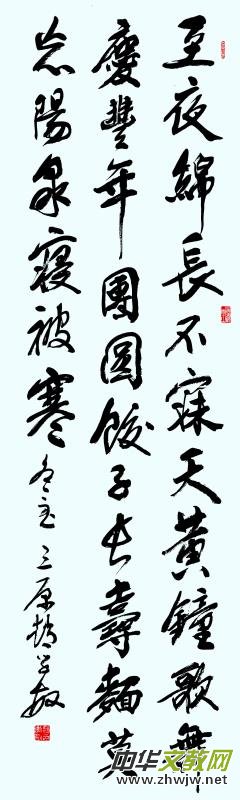 至夜綿長不寐天黃鐘歌舞
慶豐年團圓餃子長壽麵莫
忘陽泉寢被寒
冬至 三原
中华文教网
www.zhwjw.net